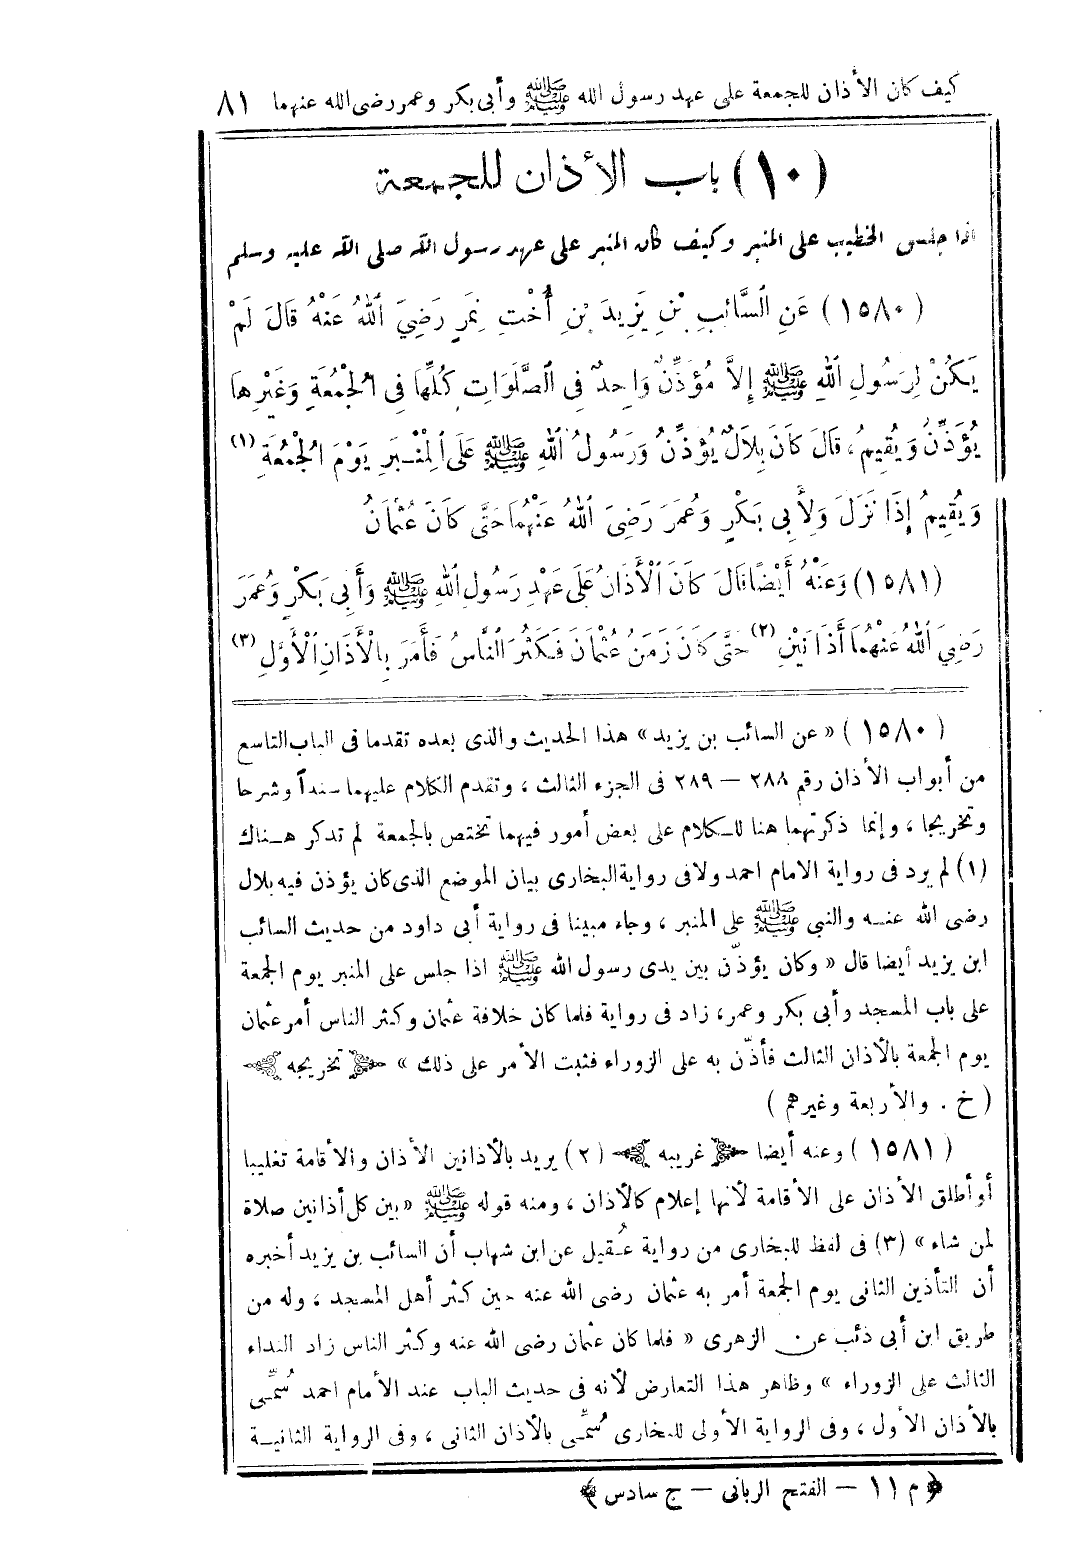 كيف كان الأذان للجمعة على عهد رسول الله ﷺ وأبى بكر وعمر رضى الله عنهما ٨١
(١٠) باب الأذان للجمعة
اذا جلس الخطيب على المنبر وكيف كان المنبر على عهد رسول الله صلى الله عليه وسلم
(١٥٨٠) عَنِ السَّائِبِ بْنِ يَزِيدَ بْنِ أُخْتِ نِمَرٍ رَضِيَ اللهُ عَنْهُ قَالَ لَمْ
يَكُنْ لِرَسُولِ اللهِ ﷺ إِلَّا مُؤَذِّنٌ وَاحِدٌ فِى الصَّلَوَاتِ كُلِّهَا فِى الْجُمُعَةِ وَغَيْرِهَا
يُؤَذِّنُ وَيُقِيمُ، قَالَ كَانَ بِلَالٌ يُؤَذِّنُ وَرَسُولُ اللهِ ﷺ عَلَى الْمِنْبَرِ يَوْمَ الْجُمُعَةِ (١)
وَيُقِيمُ إِذَا نَزَلَ وَلِأَبِى بَكْرٍ وَعُمَرَ رَضِىَ اللهُ عَنْهُمَا حَتَّى كَانَ عُثْمَانُ
(١٥٨١) وَعَنْهُ أَيْضًا قَالَ كَانَ الْأَذَانُ عَلَى عَهْدِ رَسُولِ اللهِ ﷺ وَأَبِى بَكْرٍ وَعُمَرَ
رَضِيَ اللهُ عَنْهُمَا أَذَانَيْنِ (٢) حَتَّى كَانَ زَمَنُ عُثْمَانَ فَكَثُرَ النَّاسُ فَأَمَرَ بِالْأَذَانِ الْأَوَّلِ (٣)
(١٥٨٠) «عن السائب بن يزيد» هذا الحديث والذى بعده تقدما فى الباب التاسع
من أبواب الأذان رقم ٢٨٨ — ٢٨٩ فى الجزء الثالث ، وتقدم الكلام عليهما سنداً وشرحا
وتخريجا ، وإنما ذكرتهما هنا للكلام على بعض أمور فيهما تختص بالجمعة لم تذكر هناك
(١) لم يرد فى رواية الامام احمد ولا فى رواية البخارى بيان الموضع الذى كان يؤذن فيه بلال
رضى الله عنه والنبى ﷺ على المنبر ، وجاء مبينا فى رواية أبى داود من حديث السائب
ابن يزيد أيضا قال « وكان يؤذّن بين يدى رسول الله ﷺ اذا جلس على المنبر يوم الجمعة
على باب المسجد وأبى بكر وعمر، زاد فى رواية فلما كان خلافة عثمان وكثر الناس أمر عثمان
يوم الجمعة بالأذان الثالث فأذّن به على الزوراء فثبت الأمر على ذلك » تخريجه
(خ . والأربعة وغيرهم)
(١٥٨١) وعنه أيضا غريبه (٢) يريد بالأذانين الأذان والأقامة تغليبا
أو أطلق الأذان على الأقامة لأنها إعلام كالأذان ، ومنه قوله ﷺ « بين كل أذانين صلاة
لمن شاء » (٣) فى لفظ للبخارى من رواية عُقيل عن ابن شهاب أن السائب بن يزيد أخبره
أن التأذين الثانى يوم الجمعة أمر به عثمان رضى الله عنه حين كثر أهل المسجد ، وله من
طريق ابن أبى ذئب عن الزهرى « فلما كان عثمان رضى الله عنه وكثر الناس زاد النداء
الثالث على الزوراء » وظاهر هذا التعارض لأنه فى حديث الباب عند الأمام احمد سُمِّى
بالأذان الأول ، وفى الرواية الأولى للبخارى سُمِّى بالأذان الثانى ، وفى الرواية الثانية
﴿م ١١ — الفتح الربانى — ج سادس﴾